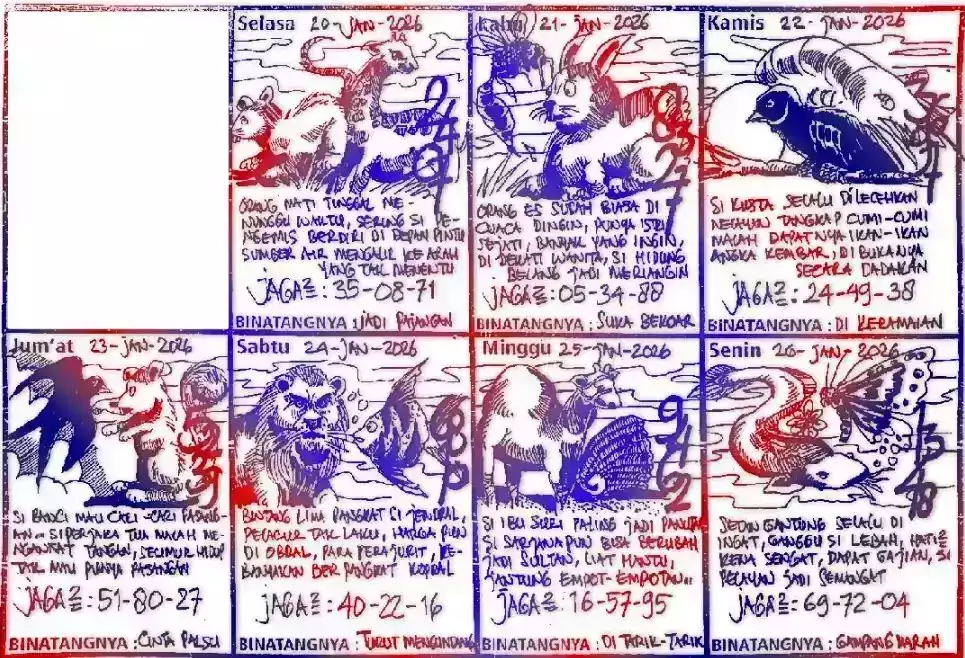 Selasa 20-JAN-2026
ORANG MATI TUNGGAL ME-
NUNGGU WAKTU, SERING SI PE-
NGEMIS BERDIRI DI DEPAN PINTU
SUMBER AIR MENGALIR KE ARAH
YANG TAK MENENTU
JAGA2 : 35-08-71
BINATANGNYA : JADI PAJANGAN
Rabu 21-JAN-2026
ORANG ES SUDAH BIASA DI
CUACA DINGIN, PUNYA ISTRI
SEJATI, BANYAK YANG INGIN,
DI DEKATI WANITA, SI HIDUNG
BELANG JADI MERIANGIN
JAGA2 : 05-34-88
BINATANGNYA : SUKA BERKOAR
Kamis 22-JAN-2026
SI KUSTA SELALU DILECEHKAN
NELAYAN TANGKAP CUMI-CUMI
MALAH DAPATNYA IKAN-IKAN
ANGKA KEMBAR, DI BUKANYA
SECARA DADAKAN
JAGA2 : 24-49-38
BINATANGNYA : DI KERAMAIAN
Jum'at 23-JAN-2026
SI BANCI MAU CARI-CARI PASANG-
AN.. SI PERJAKA TUA MALAH ME-
NGANGKAT TANGAN, SEUMUR HIDUP
TAK MAU PUNYA PASANGAN
JAGA2 : 51-80-27
BINATANGNYA : CINTA PALSU
Sabtu 24-JAN-2026
BINTANG LIMA PANGKAT SI JENDRAL,
PELACUR TAK LAKU, HARGA PUN
DI OBRAL, PARA PERAJURIT, KE-
BANYAKAN BERPANGKAT KOPRAL
JAGA2 : 40-22-16
BINATANGNYA : TURUT MENGUNDANG
Minggu 25-JAN-2026
SI IBU SURI PALING JADI PANUTAN
SI SARJANA PUN BISA BERUBAH
JADI SULTAN, LIAT HANTU,
JANTUNG EMPOT-EMPOTAN..
JAGA2 : 16-57-95
BINATANGNYA : DI TARIK-TARIK
Senin 26-JAN-2026
SELALU DI
INGAT, GANGGU SI LEBAH, HATI2
KENA SENGAT, DAPAT GAJIAN, SI
PELAYAN JADI SEMANGAT
JAGA2 : 69-72-04
BINATANGNYA : GAMPANG MARAH